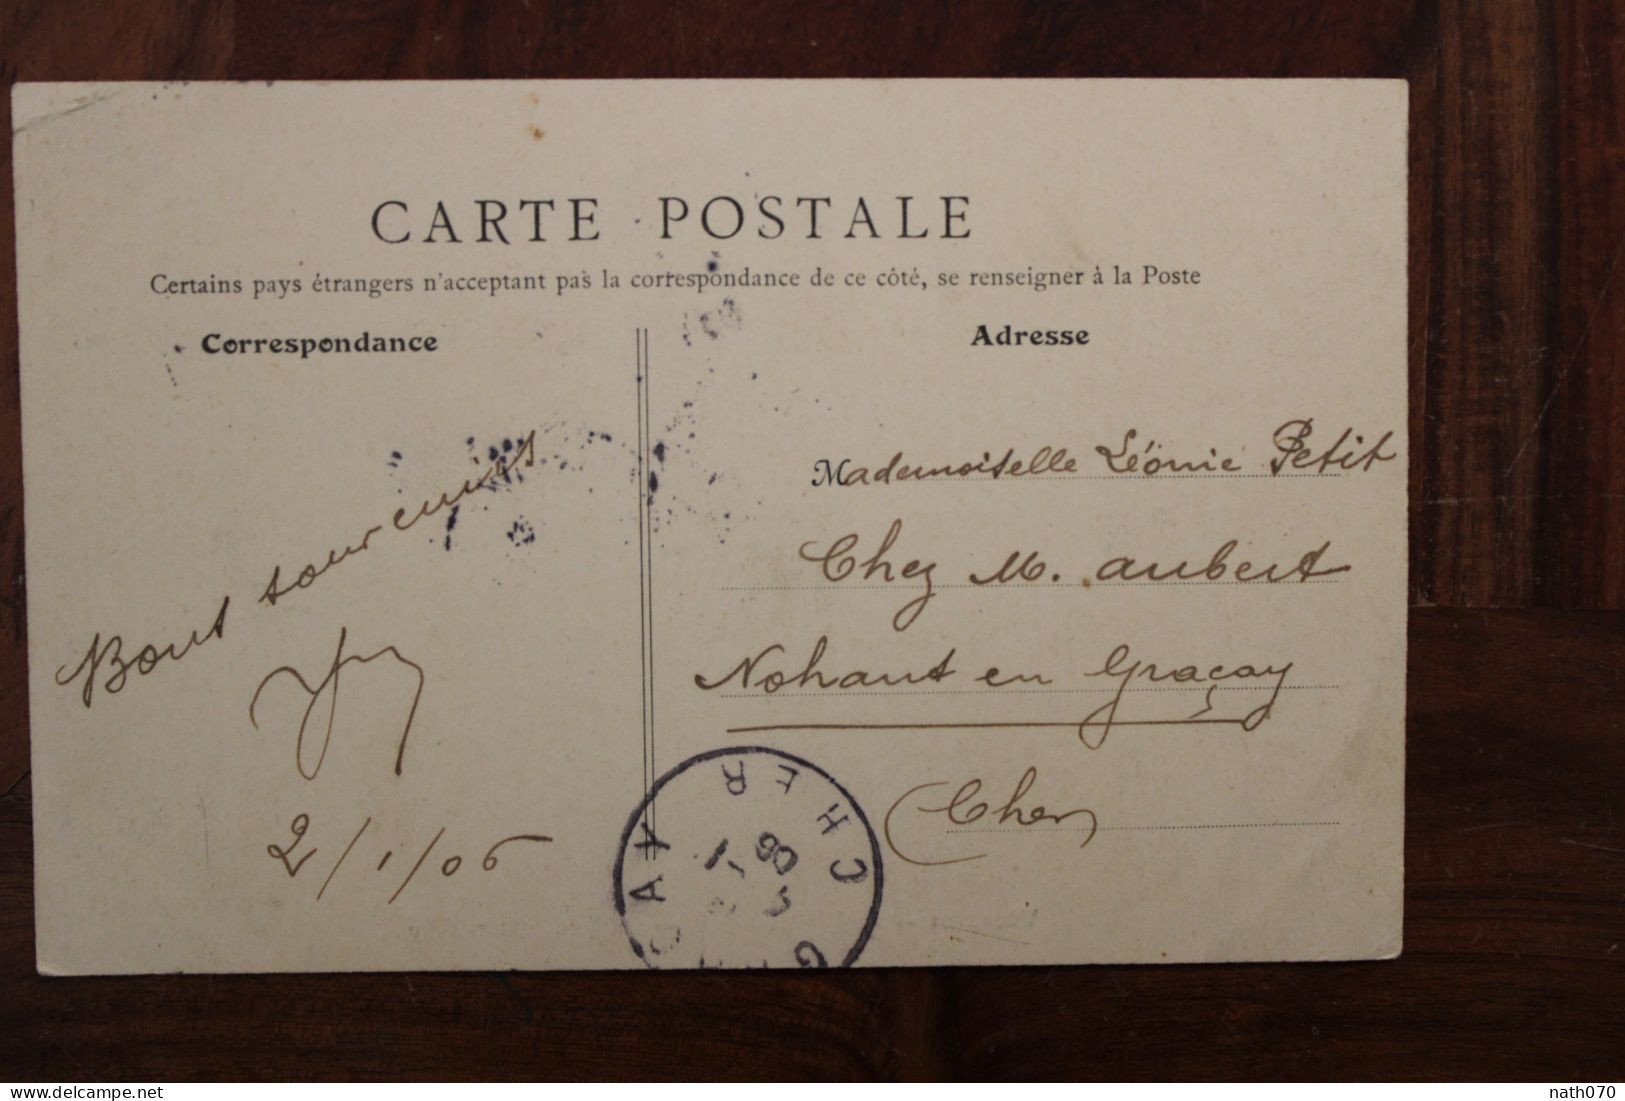 CARTE POSTALE
Certains pays étrangers n'acceptant pas la correspondance de ce côté, se renseigner à la Poste
Correspondance
Adresse
Bons souvenirs
2/1/06
Mademoiselle Léonie Petit
Chez M. aubert
Nohant en Graçay
(Cher)
CHER
nath070